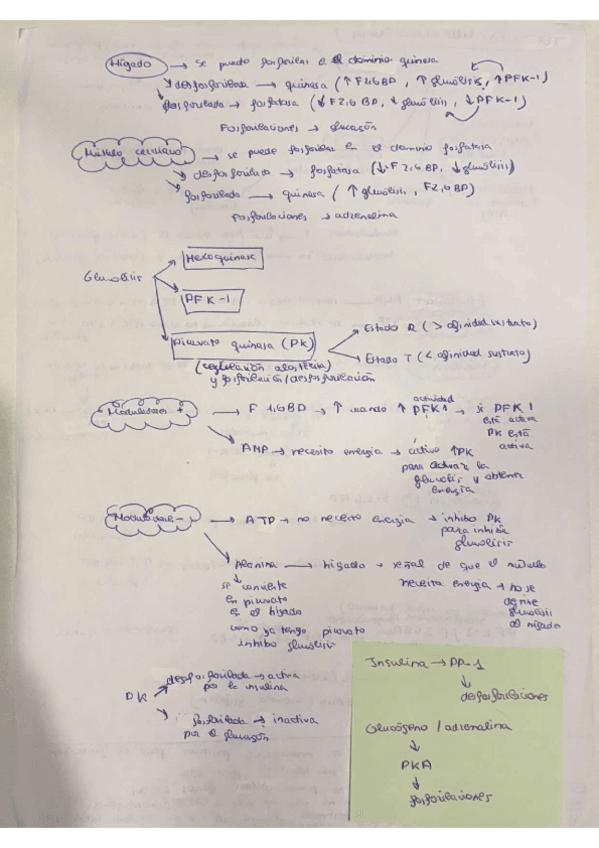 Hígado → se puede fosforilar e el dominio quinasa
desfosforilada → quinasa (↑ F2,6BP, ↑ glucólisis, ↑ PFK-1)
fosforilada → fosfatasa (↓ F2,6 BP, ↓ glucólisis, ↓ PFK-1)
Fosforilaciones → glucagón
Músculo cardíaco → se puede fosforilar en el dominio fosfatasa
desfosforilada → fosfatasa (↓ F2,6 BP, ↓ glucólisis)
fosforilada → quinasa (↑ glucólisis, F2,6BP)
Fosforilaciones → adrenalina
Glucólisis
Hexoquinasa
PFK-1
Piruvato quinasa (PK)
(regulación alostérica)
y fosforilación/desfosforilación
Estado R (> afinidad sustrato)
Estado T (< afinidad sustrato)
Moduladores + → F 1,6BD → ↑ cuando ↑ actividad PFK1 → si PFK 1
está activa
PK está
activa
AMP → necesito energía → activo ↑PK
para activar la
glucolisis y obtener
energía
Moduladores - → ATP → no necesito energía → inhibo PK
para inhibir
glucolisis
Alanina → hígado → señal de que el músculo
necesita energía → no se
glucolisis
el hígado
se convierte
en piruvato
en el hígado
como ya tengo piruvato
inhibo glucolisis
PK
desfosforilada → activa
por la insulina
fosforilada → inactiva
por el glucagón
Insulina → PP-1
↓
desfosforilaciones
Glucógeno / adrenalina
↓
PKA
↓
fosforilaciones